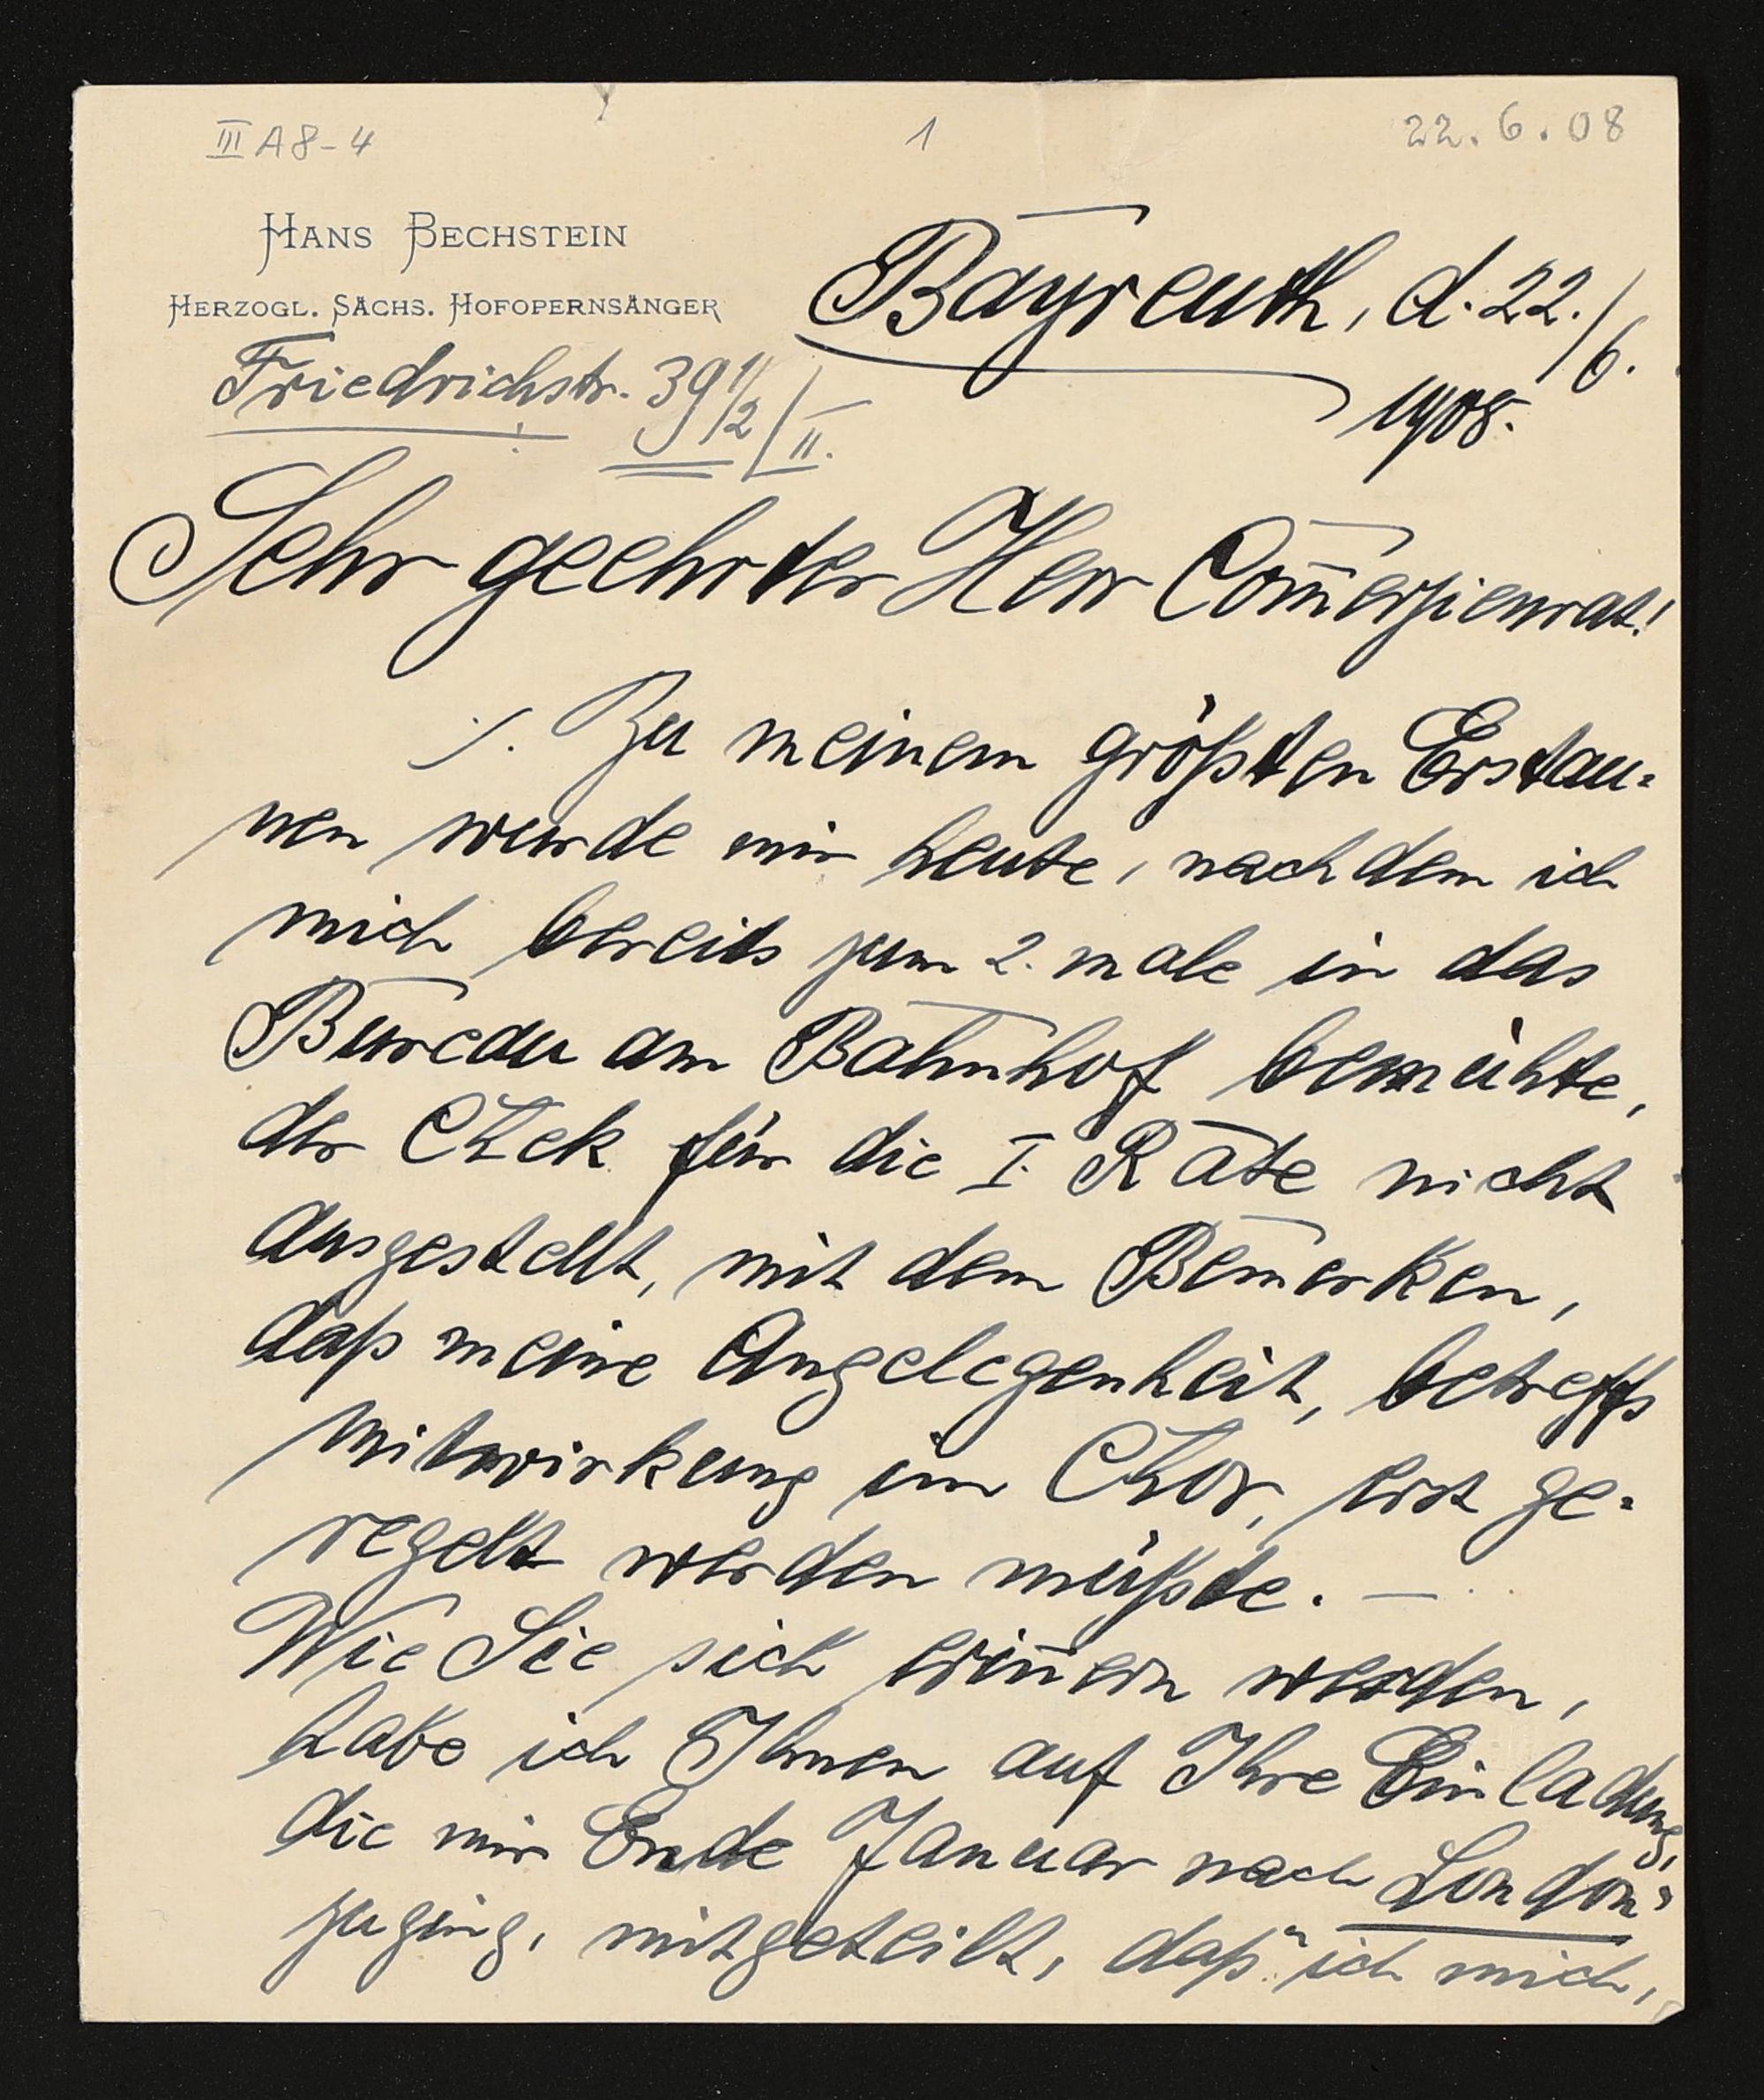 III A 8-4
1
22.6.08
HANS BECHSTEIN
HERZOGL. SÄCHS. HOFOPERNSÄNGER
Bayreuth, d. 22./6.
1908.
Friedrichstr. 39 1/2/II.
Sehr geehrter Herr Com̅erzienrat!
/. Zu meinem größten Erstau=
nen wurde mir heute, nachdem ich
mich bereits zum 2. male in das
Bureau am Bahnhof bemühte,
der Chek für die I. Rate nicht
ausgestellt, mit dem Bemerken,
daß meine Angelegenheit, betreffs
Mitwirkung im Chor, erst ge=
regelt werden müßte. —
Wie Sie sich erin̅ern werden,
habe ich Ihnen auf Ihre Einladung,
die mir Ende Januar nach London
zuging, mitgeteilt, daß "ich mich,